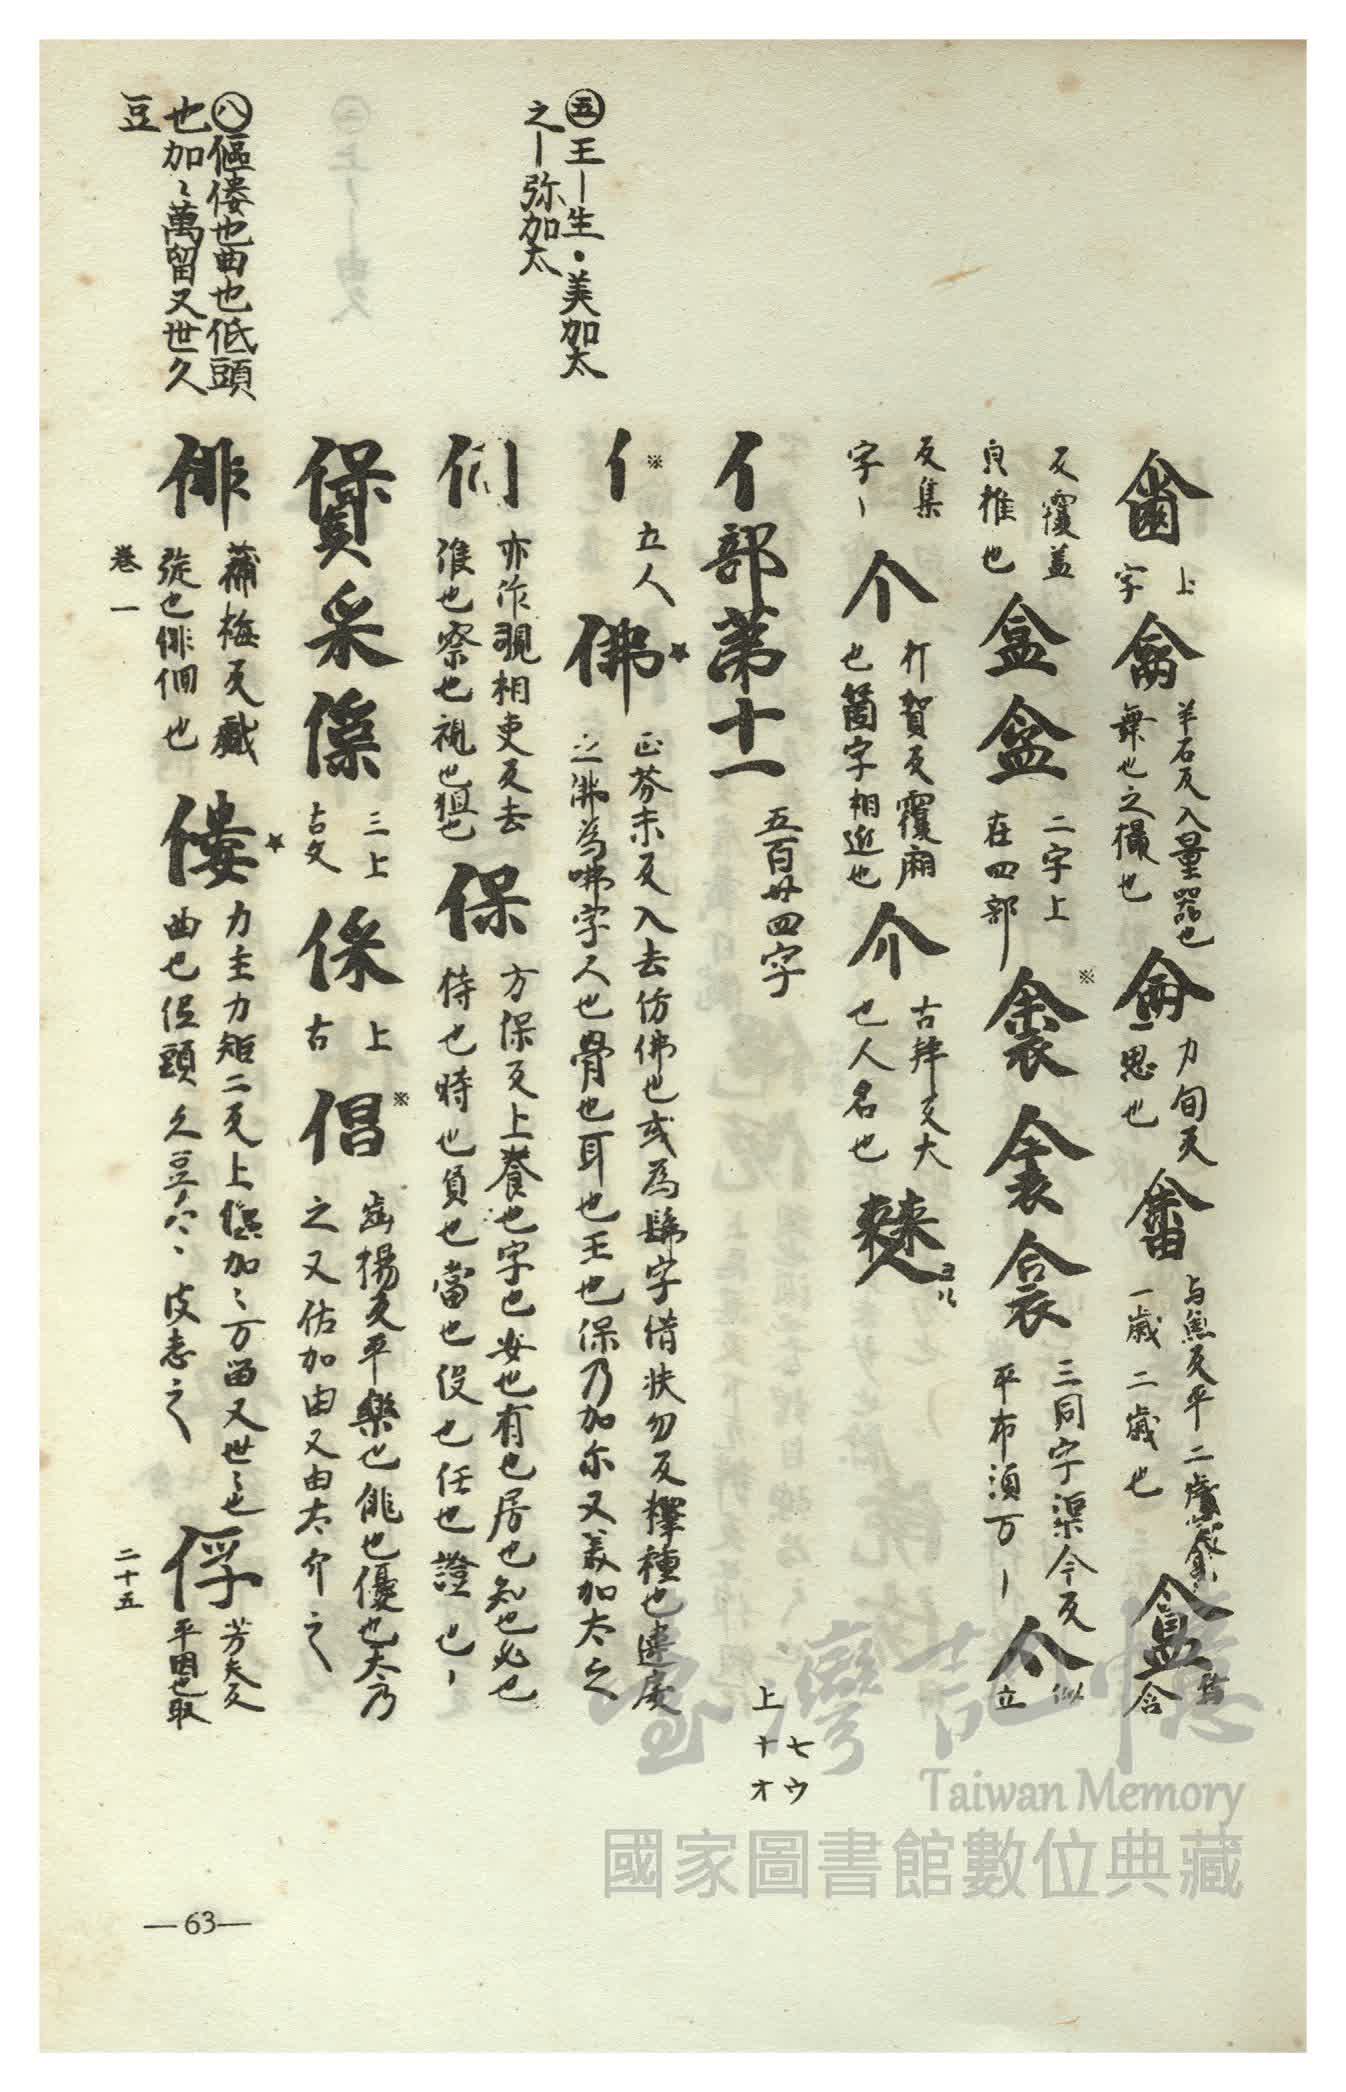 ㊄王ー生・美加太
之ー弥加太
㊇傴僂也曲也低頭
也加〻萬留又世久
豆
上字
羊石反入量器也
舞也之橫也
侖
力旬反
一思也
畬
与魚反平二歲
一歲二歲也
盒
含
反覆蓋
良椎也
盒盆
二字上
在四部
三同字渠今反
平布須万ー
亼
似立
反集
字ー
个
打賀反覆廁
也箇字相近也
介
古拜反大
也人名也
亻部第十一
五百卅四字
亻※
立人
佛★
正芬未反入去仿佛也或為髴字借扶勿反擇種也違戾
之沸為咈字人也骨也耳也王也保乃加尓又美加太之
亦作覗相吏反去
准也察也視也狙也
保
方保反上養也字也安也有也居也知也必也
待也時也負也當也役也任也證也ー
三上
古文
上
古
倡※
齒揚反平樂也俳也優也太乃
之又估加由又由太介之
俳
蒲梅反戲
從也俳佪也
僂★
力主力矩二反上傴加〻万留又世〻也
曲也低頭久豆
俘
芳夫反
平囚也取
七ウ
上十オ
卷一
二十五
—63—
臺灣記憶
Taiwan Memory
國家圖書館數位典藏